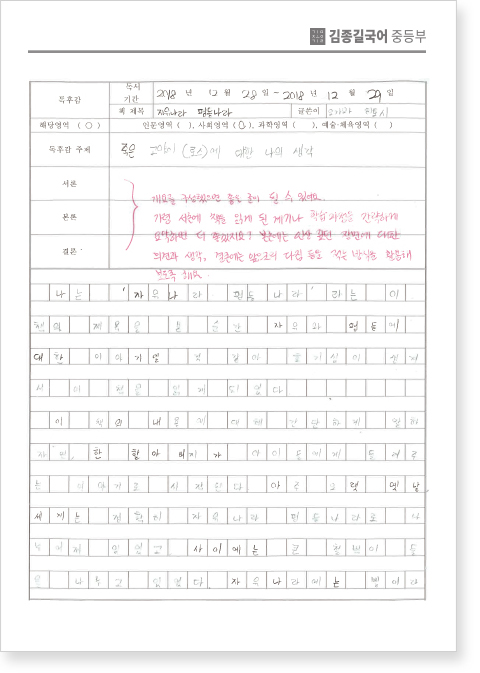 김종길국어 중등부
독후감 독서 기간 2018 년 12 월 28 일 - 2018 년 12 월 29 일
책 제목 자유나라 평등나라 글쓴이
해당영역 ( ○ ) 인문영역 ( ), 사회영역 ( ○ ), 과학영역 ( ), 예술·체육영역 ( )
독후감 주제 죽은 에 대한 나의 생각
서론
본론
결론
개요를 구성했으면 좋은 글이 될 수 있어요.
가령 서론에 책을 읽게 된 계기나 학습과정을 간략하게
요약하면 더 좋겠지요? 본론에는 인상 깊던 장면에 대한
의견과 생각, 결론에는 앞으로의 다짐 등도 적는 방식을 활용해
보도록 해요.
나는 '자유나라 평등나라'라는 이
책의 제목을 본 순간 자유와 평등에
대한 이야기일 것 같아
서 이 책을 읽게 되었다
이 책의 내용을 대해 간단하게 말하
자면, 한 할아버지가 아이들에게 들려주
는 이야기로 시작된다 아주 오랫 옛날
세계는 정확히 자유나라 평등나라로 나
누어져 있었고, 사이에는 큰 장벽이 등
을 나누고 있었다. 자유나라에는 빵이나